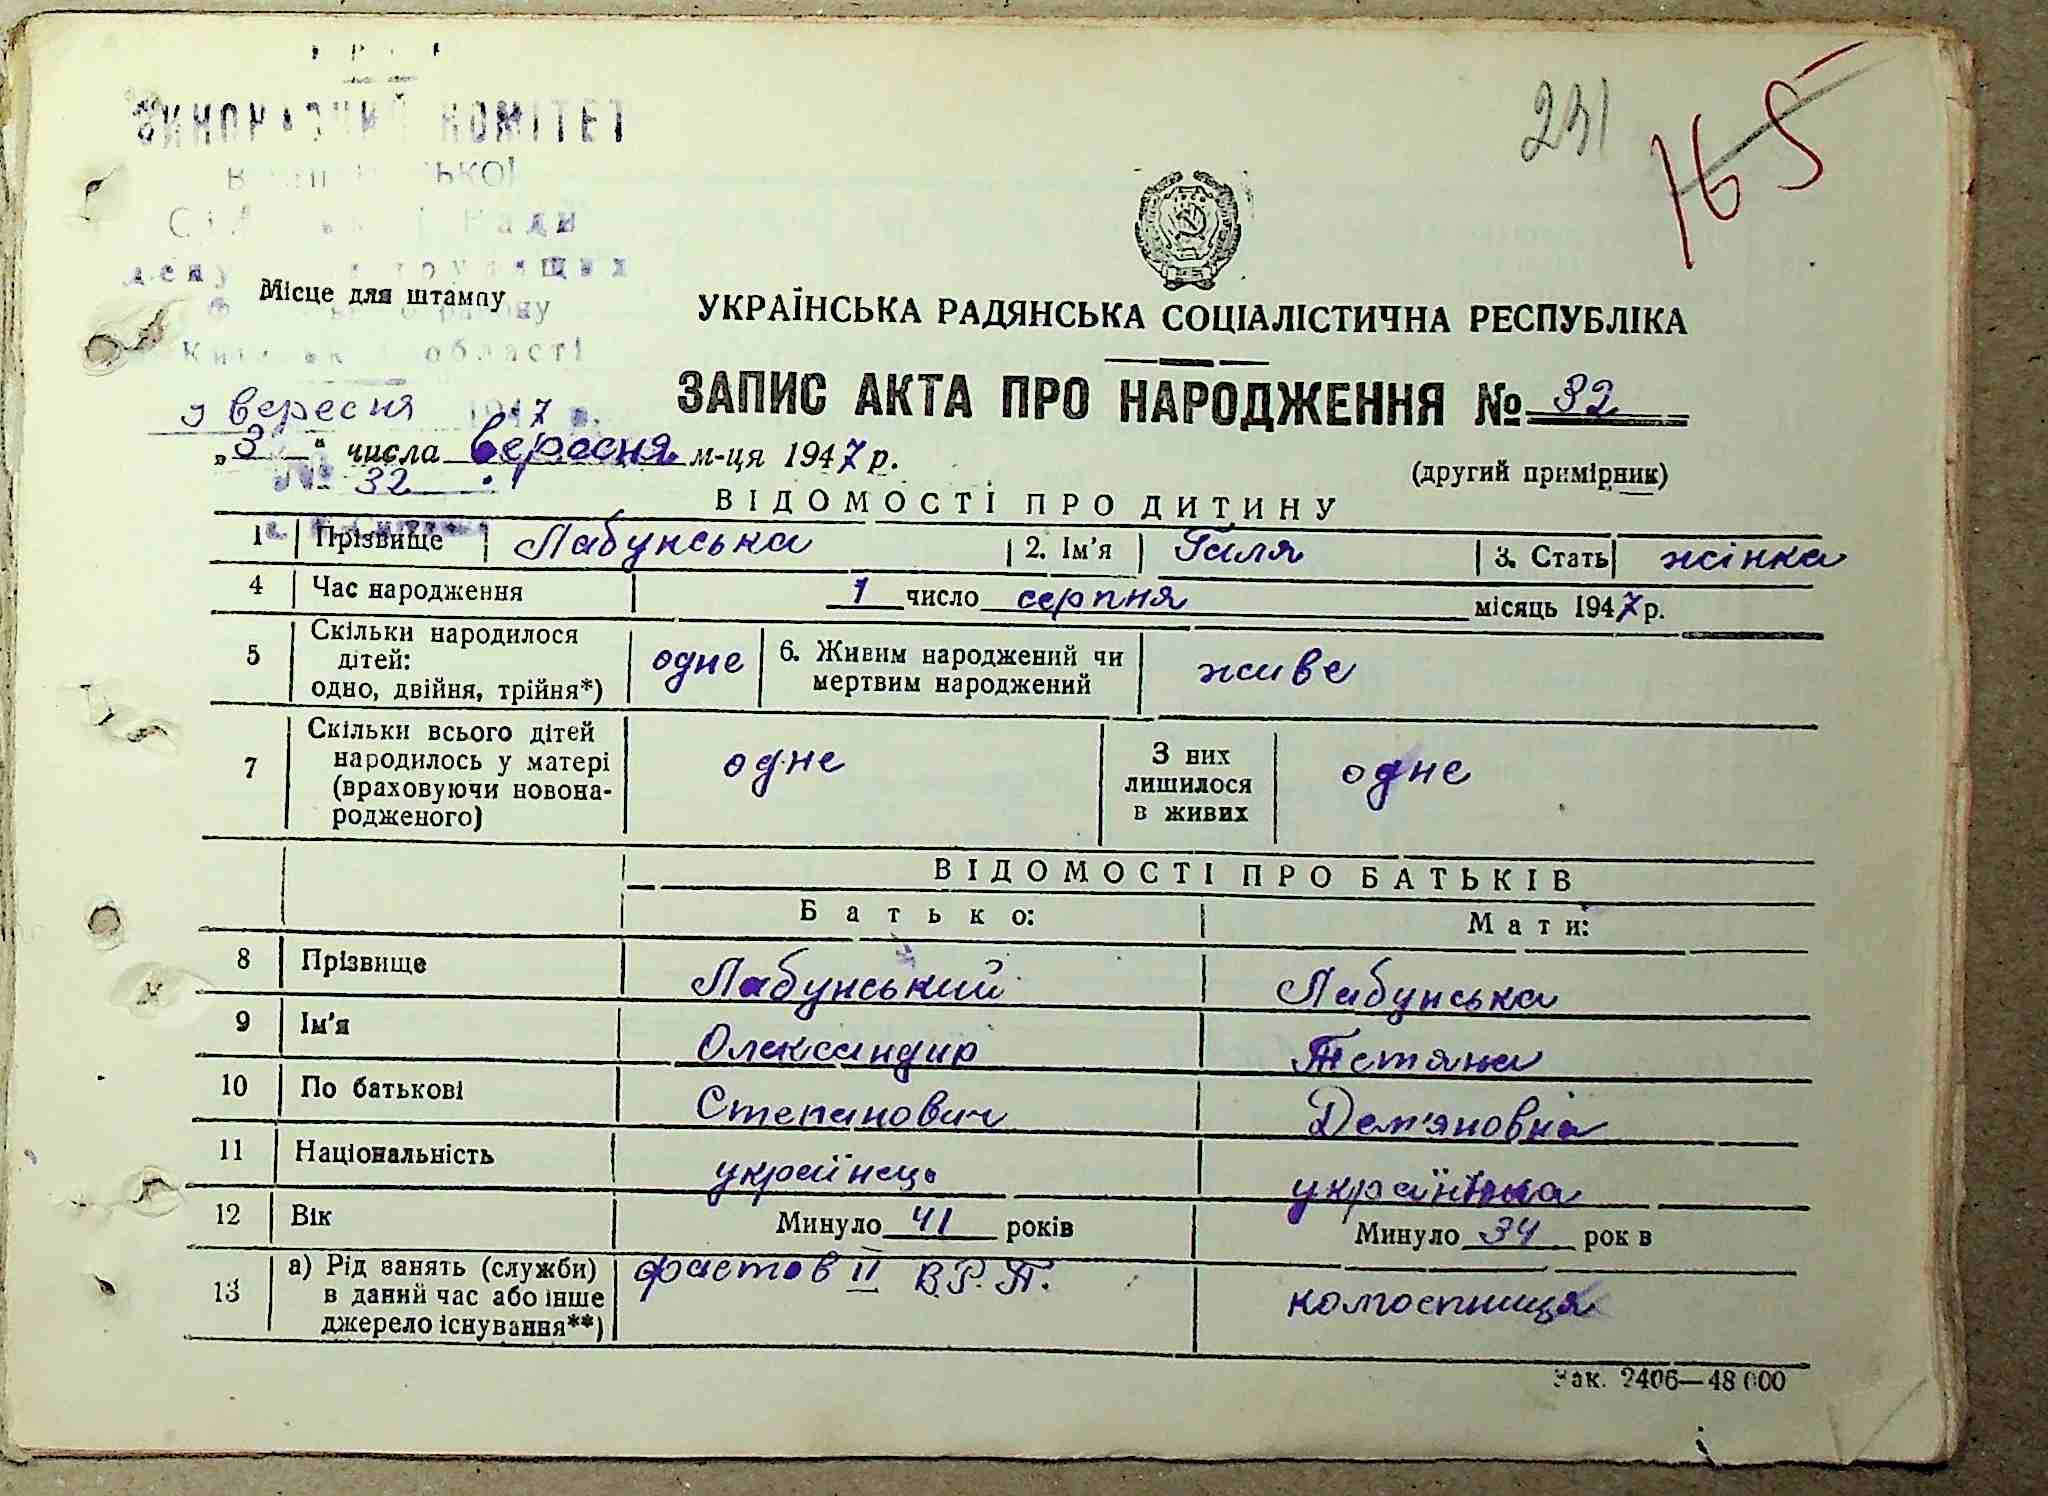 231
165
ВИКОНАВЧИЙ КОМІТЕТ
Ради
Місце для штампу
району
області
УКРАЇНСЬКА РАДЯНСЬКА СОЦІАЛІСТИЧНА РЕСПУБЛІКА
ЗАПИС АКТА ПРО НАРОДЖЕННЯ № 32
вересня 1947 р.
„3" числа вересня м-ця 1947 р.
(другий примірник)
№ 32
ВІДОМОСТІ ПРО ДИТИНУ
1 Прізвище Лабунська 2. Ім'я Галя 3. Стать жінка
4 Час народження 1 число серпня місяць 1947 р.
5 Скільки народилося дітей: одно, двійня, трійня*) одне 6. Живим народжений чи мертвим народжений живе
7 Скільки всього дітей народилось у матері (враховуючи новонародженого) одне З них лишилося в живих одне
ВІДОМОСТІ ПРО БАТЬКІВ
Батько: Мати:
8 Прізвище Лабунський Лабунська
9 Ім'я Олександир Тетяна
10 По батькові Степанович Дем'яновна
11 Національність українець українка
12 Вік Минуло 41 років Минуло 34 рок в
13 а) Рід занять (служби) в даний час або інше джерело існування**) фастов II В.Р.П. колгоспниця
Зак. 2406—48 000